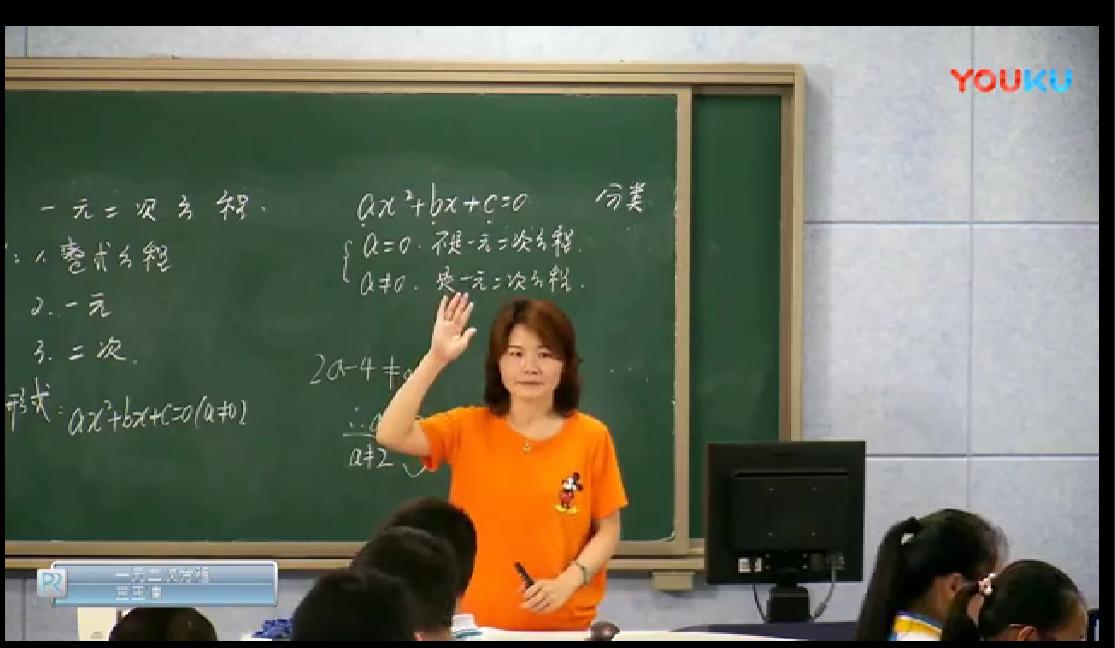 YOUKU
一元二次方程.
1. 整式方程
2. 一元
3. 二次.
形式: ax²+bx+c=0(a≠0)
ax²+bx+c=0 分类
a=0. 不是一元二次方程.
a≠0. 是一元二次方程.
2a-4≠
∴a
a≠2
一元二次方程